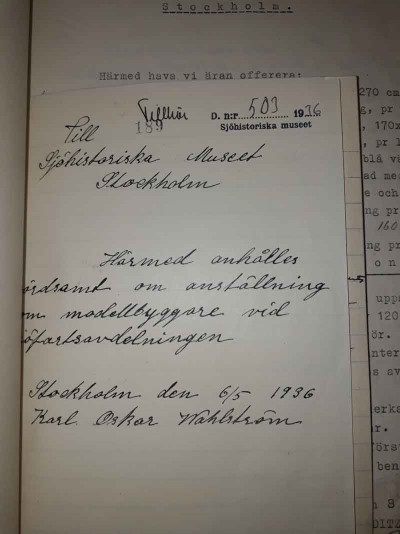 Stockholm.
Härmed hava vi äran offerera:
Tillhör
189
D. n:r 503 1936
Sjöhistoriska museet
Till
Sjöhistoriska Museet
Stockholm
Härmed anhålles
ördsamt om anställning
om modellbyggare vid
öfartsavdelningen
Stockholm den 6/5 1936
Karl Oskar Wahlström
270 cm
g, pr
, 170x
, pr 1
blå vä
ad me
e och
ng pr
160
ng pr
o n
uppa
120
ör.
nter
s av
erka
r.
örst
ben
8
DITZ